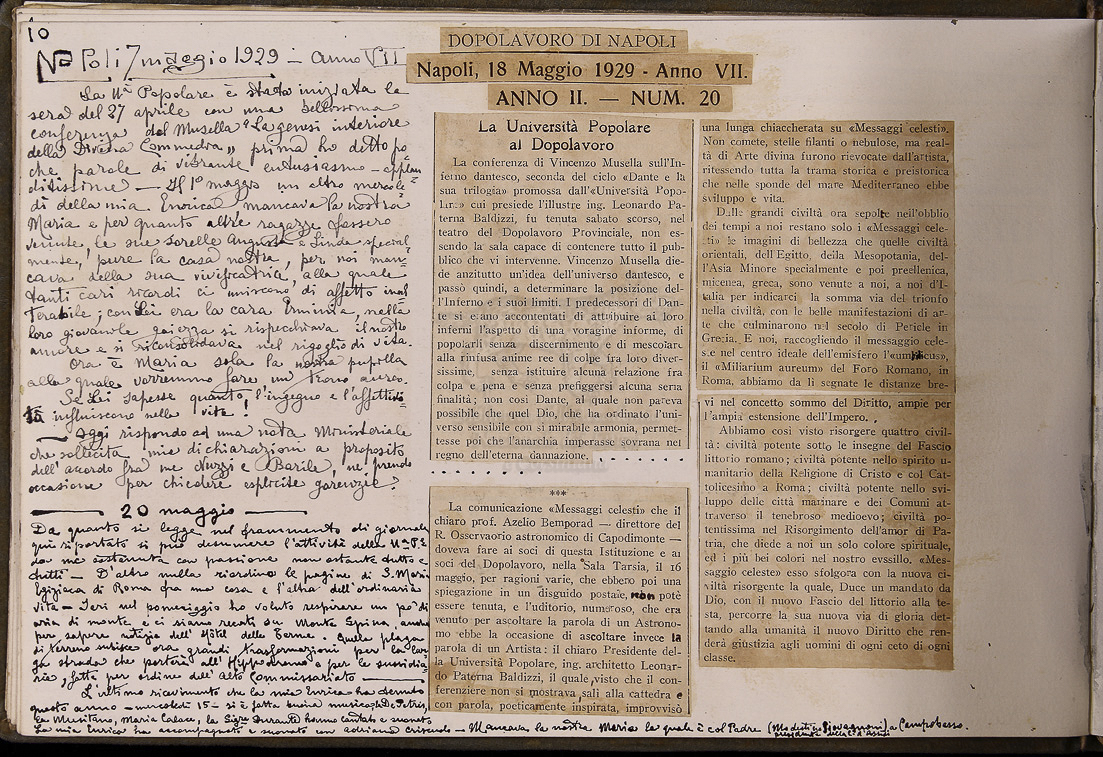 10
Napoli 7 maggio 1929 — anno VII
La Uà Popolare è stata iniziata la
sera del 27 aprile con una bellissima
conferenza del Musella "La genesi interiore
della Divina Commedia„ prima ho detto po
che parole di vibrante entusiasmo — applau
ditissime — Il 1º maggio un altro mercole
dì della mia Enrica mancava la nostra
Maria e per quanto altre ragazze fossero
venute, le sue sorelle Augusta e Linda special
mente, pure la casa nostra, per noi man
cava della sua vivificatrice, alla quale
tanti cari ricordi ci uniscono di affetto inal
terabile; con Lei era la cara Erminia, nella
loro giovanile gaiezza si rispecchiava il nostro
amore e si riconsolidava nel rigoglio di vita.
Ora è Maria sola la nostra pupilla
alla quale vorremmo fare un trono aureo.
Se Lei sapesse quanto l'ingegno e l'affettivi-
tà influiscono nella vita!
— Oggi rispondo ad una nota Ministeriale
che sollecita mie dichiarazioni a proposito
dell'accordo fra me Nuzzi e Barile, ne prendo
occasione per chiedere esplicite garenzie?
— 20 maggio —
Da quanto si legge nel frammento di giornale
qui riportato si può desumere l'attività della Uà P.
da me sostenuta con passione non ostante tutto e
tutti — D'altro nulla riordino le pagine di S. Maria
Egiziaca di Roma fra una cosa e l'altra dell'ordinaria
vita — Ieri nel pomeriggio ho voluto respirare un po' di
aria di monte e ci siamo recati su Monte Spina, anche
per sapere notizia dell'Hôtel delle Terme. Quella plaga
di terreno subisce ora grandi trasformazioni per la lar
ga strada che porterà all'Hippodromo e per le sussidia
rie, fatta per ordine dell'Alto Commissariato —
L'ultimo ricevimento che la mia Enrica ha tenuto
questo anno — mercoledì 15 — si è fatta buona musica, De Petris,
la Musitano, Maria Calace, la Sigra Durante hanno cantato e suonato
La mia Enrica ha accompagnato e suonato con Adriana — Mancava la nostra Maria la quale è col Padre (Modestino Giovagnoni) a Campobasso.
presidente della C. d'Assisi
DOPOLAVORO DI NAPOLI
Napoli, 18 Maggio 1929 - Anno VII.
ANNO II. — NUM. 20
La Università Popolare
al Dopolavoro
La conferenza di Vincenzo Musella sull'In-
ferno dantesco, seconda del ciclo «Dante e la
sua trilogia» promossa dall'«Università Popo-
lare» cui presiede l'illustre ing. Leonardo Pa-
terna Baldizzi, fu tenuta sabato scorso, nel
teatro del Dopolavoro Provinciale, non es-
sendo la sala capace di contenere tutto il pub-
blico che vi intervenne. Vincenzo Musella die-
de anzitutto un'idea dell'universo dantesco, e
passò quindi, a determinare la posizione del-
l'Inferno e i suoi limiti. I predecessori di Dan-
te si erano accontentati di attribuire ai loro
inferni l'aspetto di una voragine informe, di
popolarli senza discernimento e di mescolare
alla rinfusa anime ree di colpe fra loro diver-
sissime, senza istituire alcuna relazione fra
colpa e pena e senza prefiggersi alcuna seria
finalità; non così Dante, al quale non pareva
possibile che quel Dio, che ha ordinato l'uni-
verso sensibile con sì mirabile armonia, permet-
tesse poi che l'anarchia imperasse sovrana nel
regno dell'eterna dannazione.
***
La comunicazione «Messaggi celesti» che il
chiaro prof. Azelio Bemporad — direttore del
R. Osservaorio astronomico di Capodimonte —
doveva fare ai soci di questa Istituzione e ai
soci del Dopolavoro, nella Sala Tarsia, il 16
maggio, per ragioni varie, che ebbero poi una
spiegazione in un disguido postale, non potè
essere tenuta, e l'uditorio, numeroso, che era
venuto per ascoltare la parola di un Astrono-
mo ebbe la occasione di ascoltare invece la
parola di un Artista: il chiaro Presidente del-
la Università Popolare, ing. architetto Leonar-
do Paterna Baldizzi, il quale, visto che il con-
ferenziere non si mostrava, salì alla cattedra e
con parola, poeticamente inspirata, improvvisò
una lunga chiaccherata su «Messaggi celesti».
Non comete, stelle filanti o nebulose, ma real-
tà di Arte divina furono rievocate dall'artista,
ritessendo tutta la trama storica e preistorica
che nelle sponde del mare Mediterraneo ebbe
sviluppo e vita.
Dalle grandi civiltà ora sepolte nell'obblio
dei tempi a noi restano solo i «Messaggi cele-
sti» le imagini di bellezza che quelle civiltà
orientali, dell'Egitto, della Mesopotania, del-
l'Asia Minore specialmente e poi preellenica,
micenea, greca, sono venute a noi, a noi d'I-
talia per indicarci la somma via del trionfo
nella civiltà, con le belle manifestazioni di ar-
te che culminarono nel secolo di Pericle in
Grecia. E noi, raccogliendo il messaggio cele-
ste nel centro ideale dell'emisfero l'«umbilicus»,
il «Miliarium aureum» del Foro Romano, in
Roma, abbiamo da lì segnate le distanze bre-
vi nel concetto sommo del Diritto, ampie per
l'ampia estensione dell'Impero.
Abbiamo così visto risorgere quattro civil-
tà: civiltà potente sotto le insegne del Fascio
littorio romano; civiltà potente nello spirito u-
manitario della Religione di Cristo e col Cat-
tolicesimo a Roma; civiltà potente nello svi-
luppo delle città marinare e dei Comuni at-
traverso il tenebroso medioevo; civiltà po-
tentissima nel Risorgimento dell'amor di Pa-
tria, che diede a noi un solo colore spirituale,
ed i più bei colori nel nostro evssillo. «Mes-
saggio celeste» esso sfolgora con la nuova ci-
viltà risorgente la quale, Duce un mandato da
Dio, con il nuovo Fascio del littorio alla te-
sta, percorre la sua nuova via di gloria det-
tando alla umanità il nuovo Diritto che ren-
derà giustizia agli uomini di ogni ceto di ogni
classe.